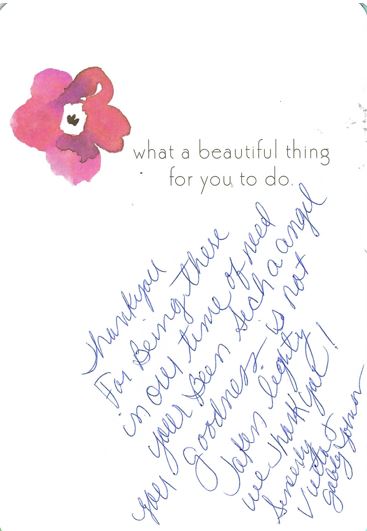 what a beautiful thing
for you to do.
Thankyou
For Being there
in our time of need
your Been Such a angel
your goodness is not
taken lighty
we thankyou!
Sincerly
Victor &
Gabby